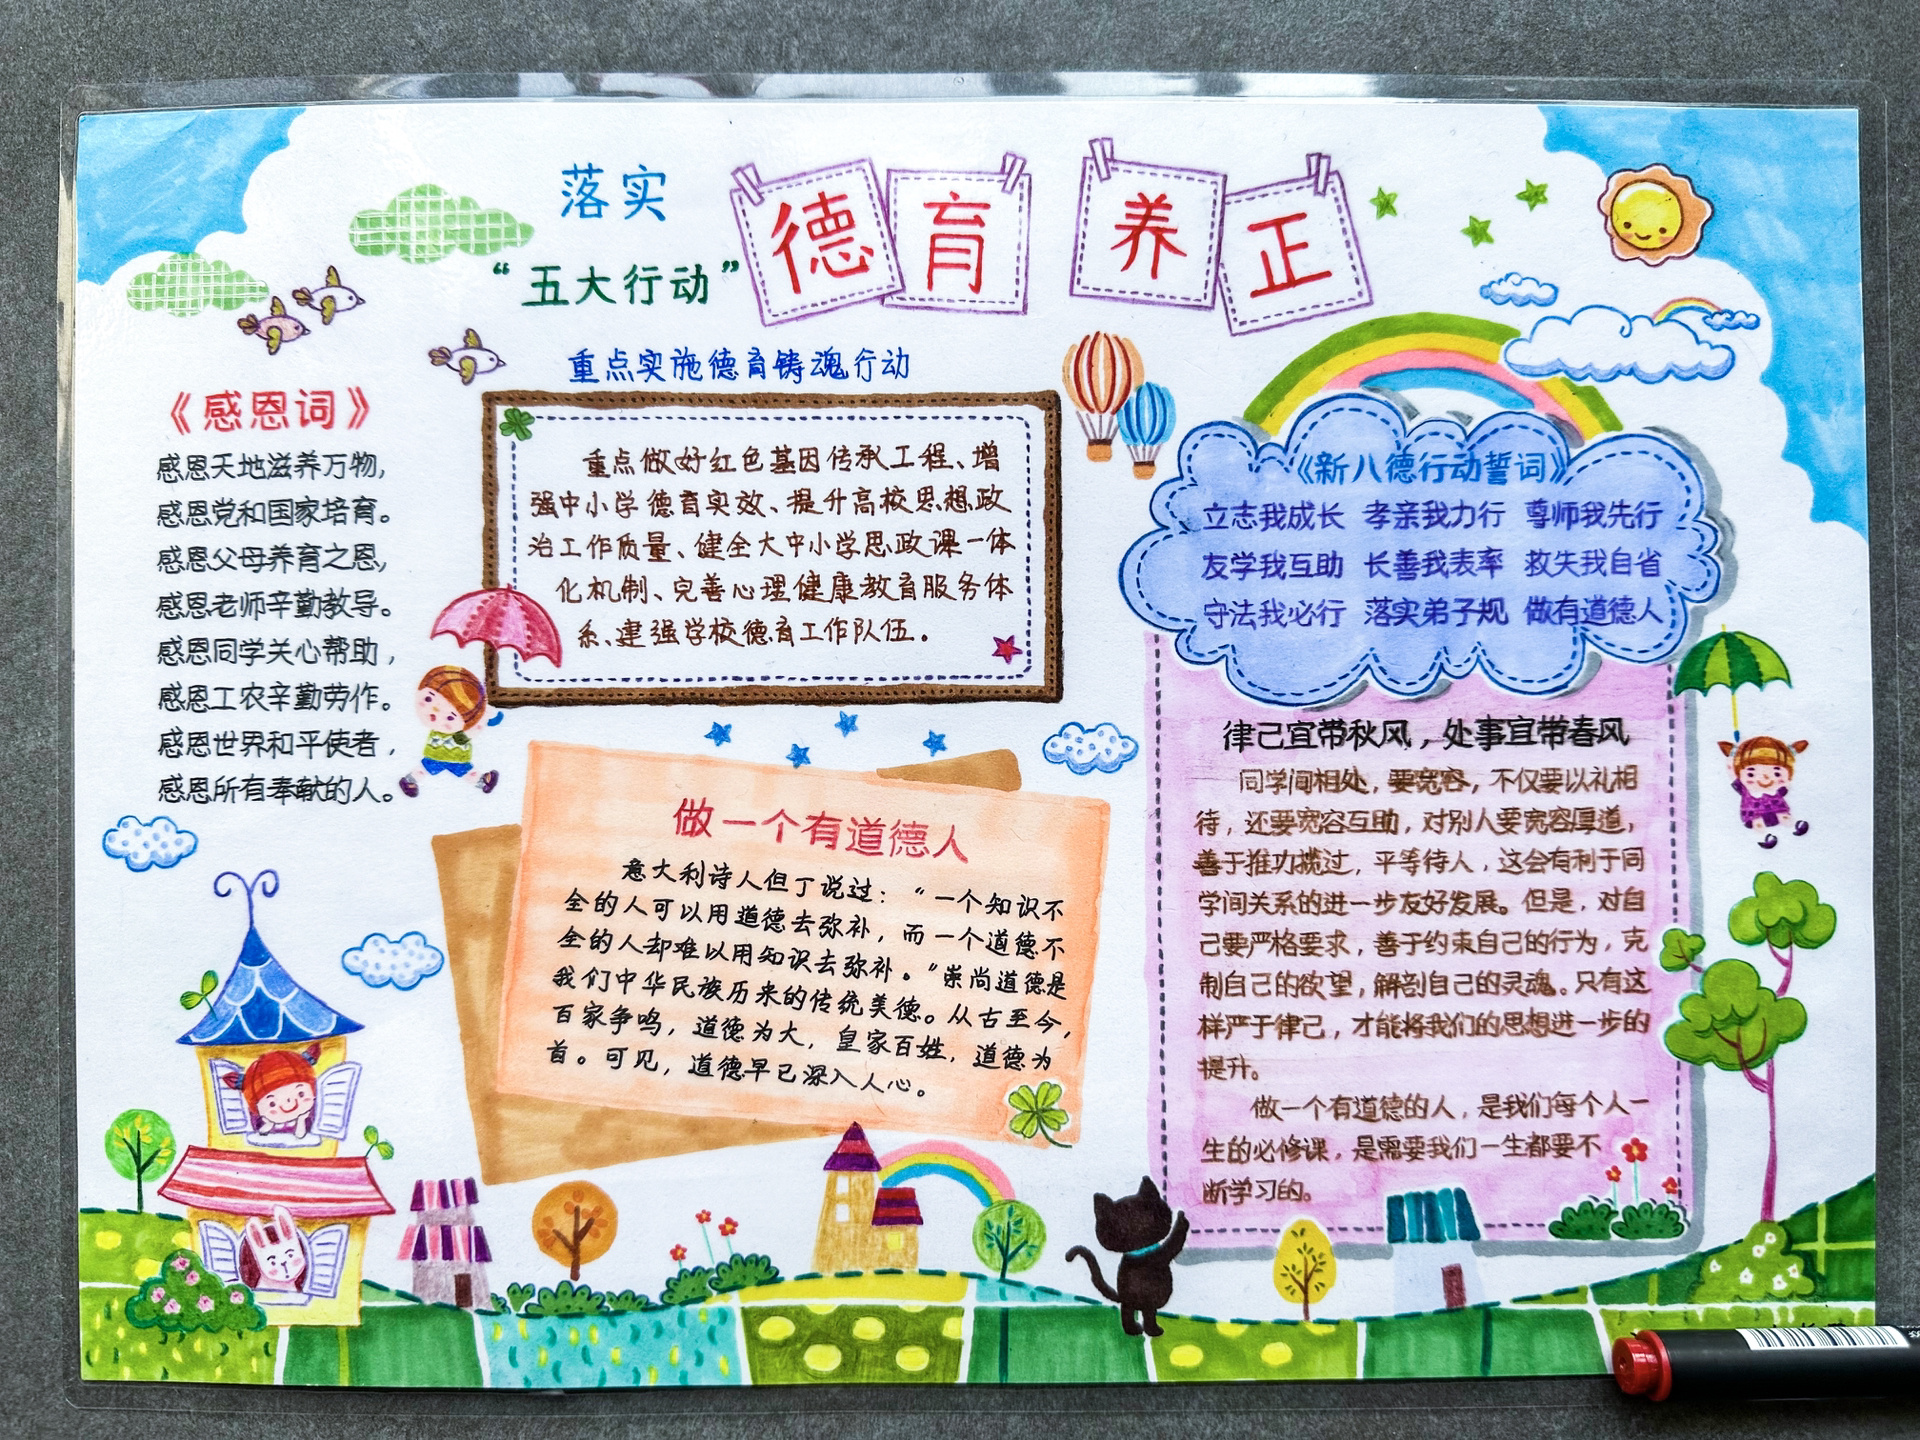 落实
“五大行动”
德育 养正
重点实施德育铸魂行动
《感恩词》
感恩天地滋养万物,
感恩党和国家培育。
感恩父母养育之恩,
感恩老师辛勤教导。
感恩同学关心帮助,
感恩工农辛勤劳作。
感恩世界和平使者,
感恩所有奉献的人。
重点做好红色基因传承工程、增
强中小学德育实效、提升高校思想政
治工作质量、健全大中小学思政课一体
化机制、完善心理健康教育服务体
系、建强学校德育工作队伍。
做一个有道德人
意大利诗人但丁说过:“一个知识不
全的人可以用道德去弥补,而一个道德不
全的人却难以用知识去弥补。”崇尚道德是
我们中华民族历来的传统美德。从古至今,
百家争鸣,道德为大,皇家百姓,道德为
首。可见,道德早已深入人心。
《新八德行动誓词》
立志我成长 孝亲我力行 尊师我先行
友学我互助 长善我表率 救失我自省
守法我必行 落实弟子规 做有道德人
律己宜带秋风,处事宜带春风
同学间相处,要宽容,不仅要以礼相
待,还要宽容互助,对别人要宽容厚道,
善于推功揽过,平等待人,这会有利于同
学间关系的进一步友好发展。但是,对自
己要严格要求,善于约束自己的行为,克
制自己的欲望,解剖自己的灵魂。只有这
样严于律己,才能将我们的思想进一步的
提升。
做一个有道德的人,是我们每个人一
生的必修课,是需要我们一生都要不
断学习的。